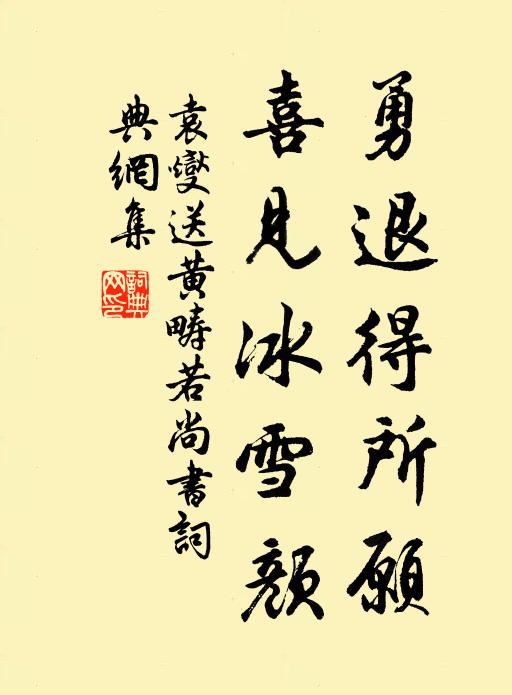 勇退得所願
喜見冰雪顏
袁燮送黃疇若尚書詞
典網集
詞典網印